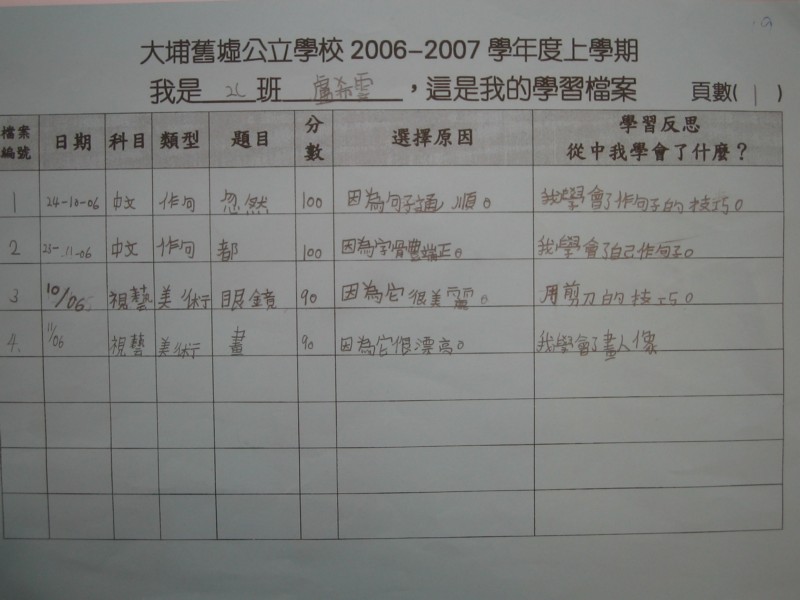 大埔舊墟公立學校 2006-2007 學年度上學期
我是 班 盧希雯 ，這是我的學習檔案 頁數( 1 )
檔案編號 日期 科目 類型 題目 分數 選擇原因 學習反思 從中我學會了什麼？
1 24-10-06 中文 作句 忽然 100 因為句子通順。 我學會了作句子的技巧。
2 23-11-06 中文 作句 都 100 因為字骨豊端正。 我學會了自己作句子。
3 10/06 視藝 美術 眼鏡 90 因為它很美麗。 用剪刀的技巧。
4. 11/06 視藝 美術 畫 90 因為它很漂高。 我學會了畫人像